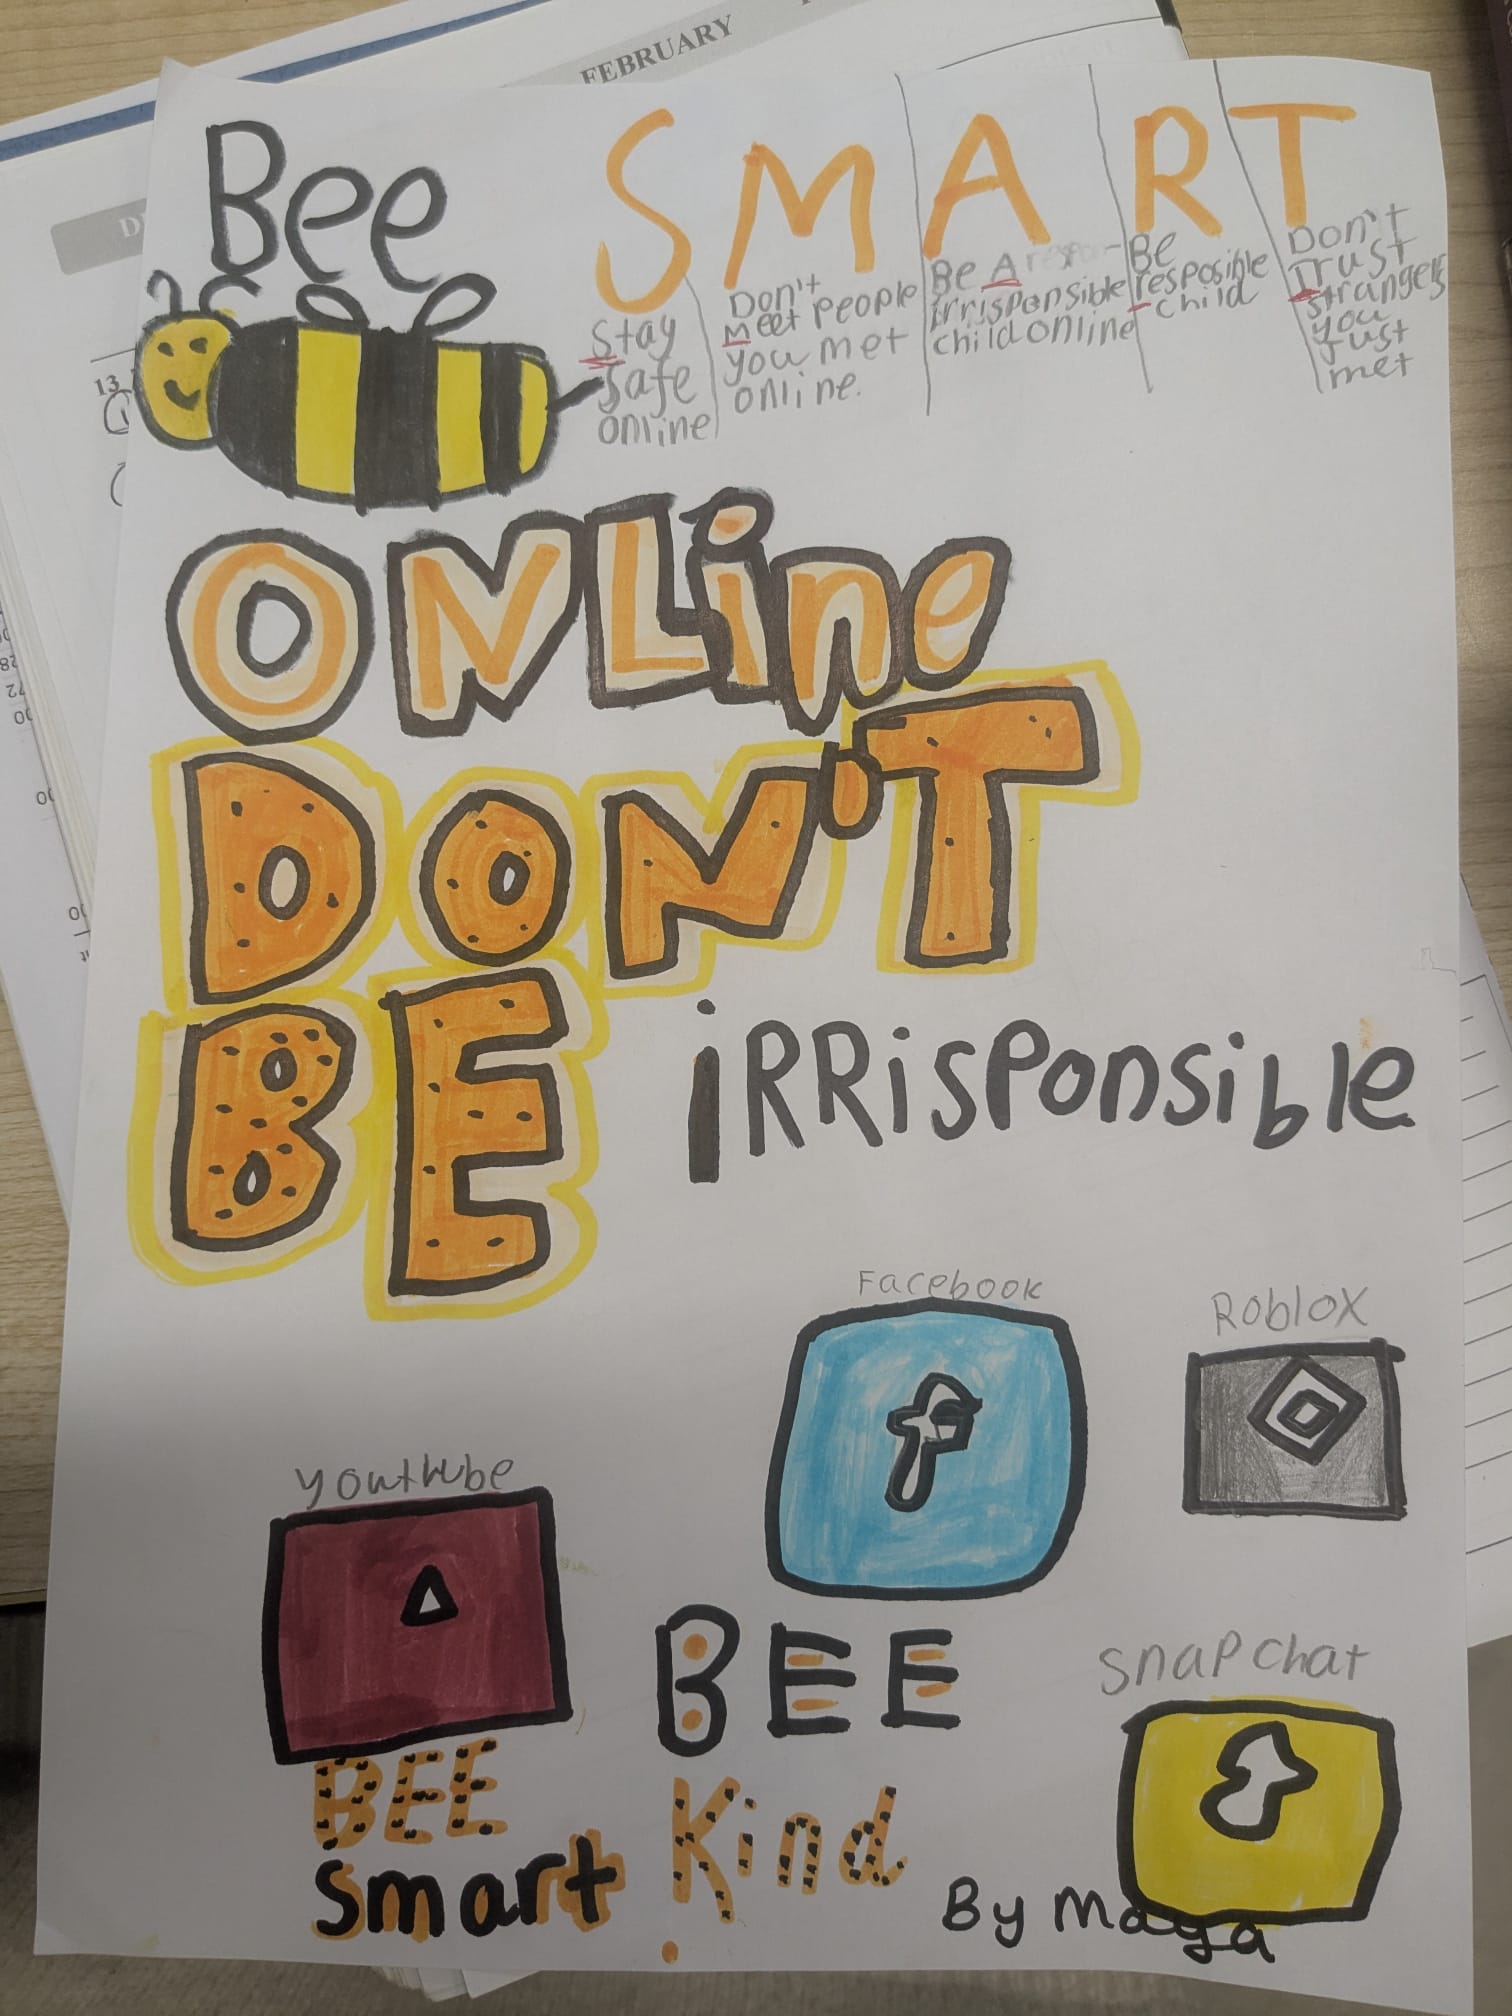 FEBRUARY
Bee SMART
Stay
Safe
online
Don't
Meet People
you met
online.
Be A
irrisponsible
child online
Be
resposible
child
Don't
Trust
strangers
you
just
met
13
ONLine
DON'T
BE iRRisponsible
Facebook
Roblox
youthube
f
BEE
snapchat
BEE
smart
Kind
By Maya